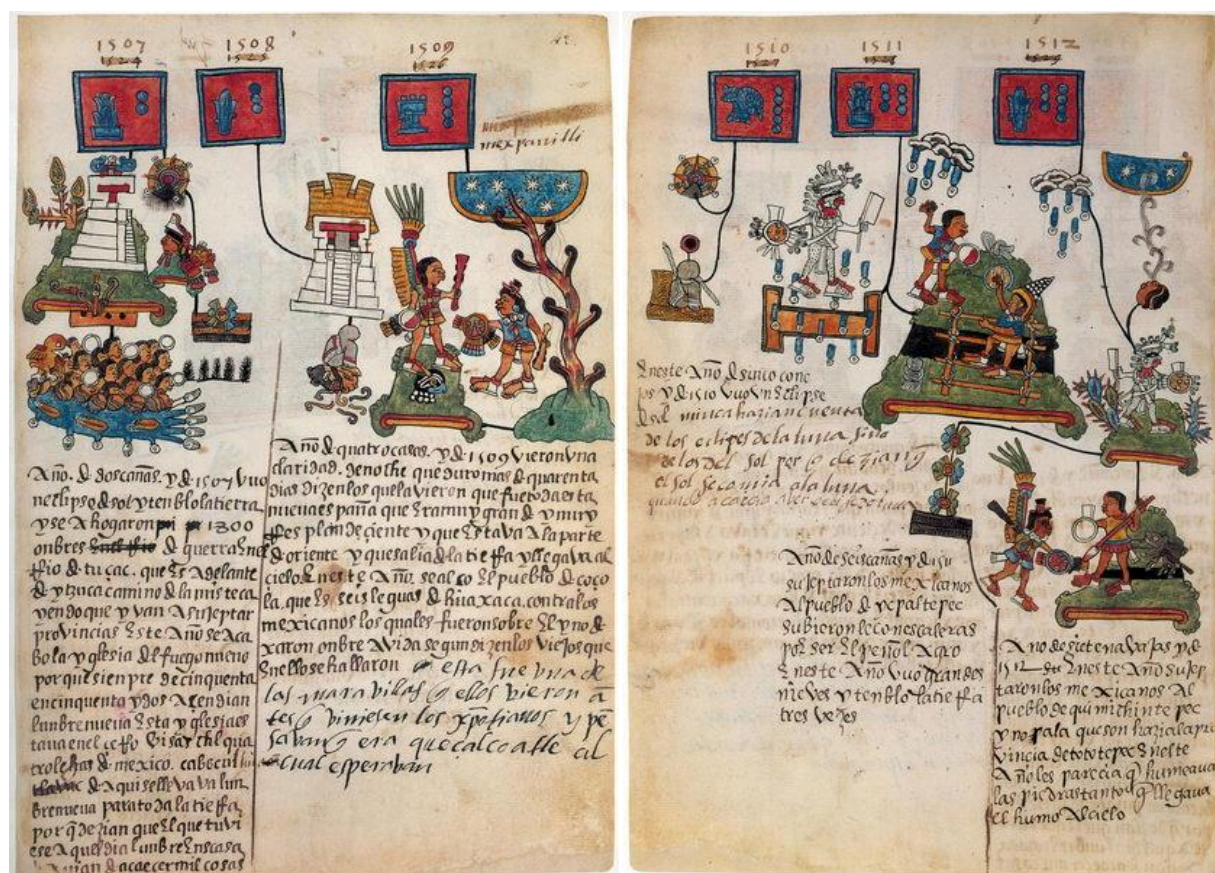 1507
1508
1509
42.
mexpanilli
Año. de dos cañas. y de 1507 vuo
n eclipse de sol y tenblo la tierra
y se ahogaron 1800
onbres de guerra en el
Rio de tuçac. que es adelante
de yzuca camino de la misteca
yendo que yvan a sujeptar
provincias este año se aca
bo la yglesia del fuego nueno
porque sienpre de cinquenta
en cinquenta y dos açendian
lunbre nueva esta yglesia es
tava en el cerro visachtl qua
tro leguas de mexico.
de aqui se lleva va lun
bre nueva para toda la tierra
por q dezian que el que tuvi
ese aquel dia lunbre en su casa
avian de acaecer mil cosas
Año de quatro casas. y de 1509 vieron vna
claridad. de noche que duro mas de quarenta
dias dizen los que la vieron que fue toda esta
nueva españa que era muy grande y muy
resplandeciente y que estava a la parte
de oriente y que salia de la tierra y llegava al
cielo en este año. se alço el pueblo de çoço
la. que es seis leguas de huaxaca. contra los
mexicanos los quales fueron sobre el y no de
xaron onbre a vida segun dizen los viejos que
en ello se hallaron esta fue vna de
las maravillas q ellos vieron an
tes q viniesen los xpistianos y pen
savan q era queçalcoatle al
cual esperavan
1510
1511
1512
en este año de cinco cone
jos y de 1510 vuo vn eclipse
de sol nunca hazian cuenta
de los eclipses de la luna sino
de los del sol por q dezian q
el sol se comia a la luna
quando acaecia aver eclipse de luna
Año de seis cañas y de 1511
sujeptaron los mexicanos
al pueblo de ycpaltepec
subieron le con escaleras
por ser el peñol agro
en este año vuo grandes
nieves y tenblo la tierra
tres vezes
Año de siete navajas y de
1512 en este año sujep
taron los mexicanos al
pueblo de quimichintepec
y nopala que son hazia la pro
vincia de tototepec en este
año les parecia q humeava
las piedras tanto q llegava
el humo al cielo